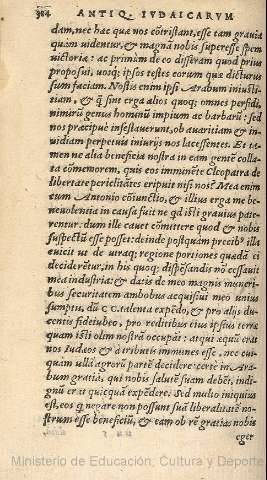 384 ANTIQ. IVDAICARVM
dam, nec hac quæ nos cōtristant, esse tam gravia
quàm uidentur, & magnā nobis superesse spem
uictoriæ: ac primùm de eo disseram quod prius
proposui, uosq; ipsos testes eorum quæ dicturus
sum faciam. Nostis enim ipsi Arabum iniusti-
tiam, & q̃ sint erga alios quoq; omnes perfidi,
nimirū genus hominū impium ac barbarū: sed
nos præcipuè infestauerunt, ob auaritiam & in-
uidiam perpetuis iniurijs nos lacessentes. Et ta-
men ne alia beneficia nostra in eam gentē colla-
ta cōmemorem, quis eos imminēte Cleopatra de
libertate periclitātes eripuit nisi nos? Mea enim
cum Antonio cōiunctio, & illius erga me be-
neuolentia in causa fuit ne qd isti grauius pate-
rentur: dum ille cauet cōmittere quod & nobis
suspectū esse posset: deinde postquàm precibꝰ illa
euicit ut de utraq; regione portiones quædā ei
decideretur, in his quoq; dispēsandis nō cessauit
mea industria: & datis de meo magnis muneri-
bus securitatem ambobus acquisiui meo unius
sumptu, dū CC. talenta expēdo, & pro alijs du-
centis fideiubeo, pro reditibus eius ipsius terræ
quam isti olim nostrā occupāt: atqui æquū erat
nos Iudæos & à tributis immunes esse, nec cui-
quàm ullā agrorū partē decidere: certe in Ara-
bum gratiā, qui nobis salutē suam debēt, indi-
gnū erat quicquā expēdere. Sed multo iniquius
est, eos q negare non possunt suā liberalitatē no-
strum esse beneficiū, & eam ob rē gratias nobis
eger
Ministerio de Educación, Cultura y Deporte